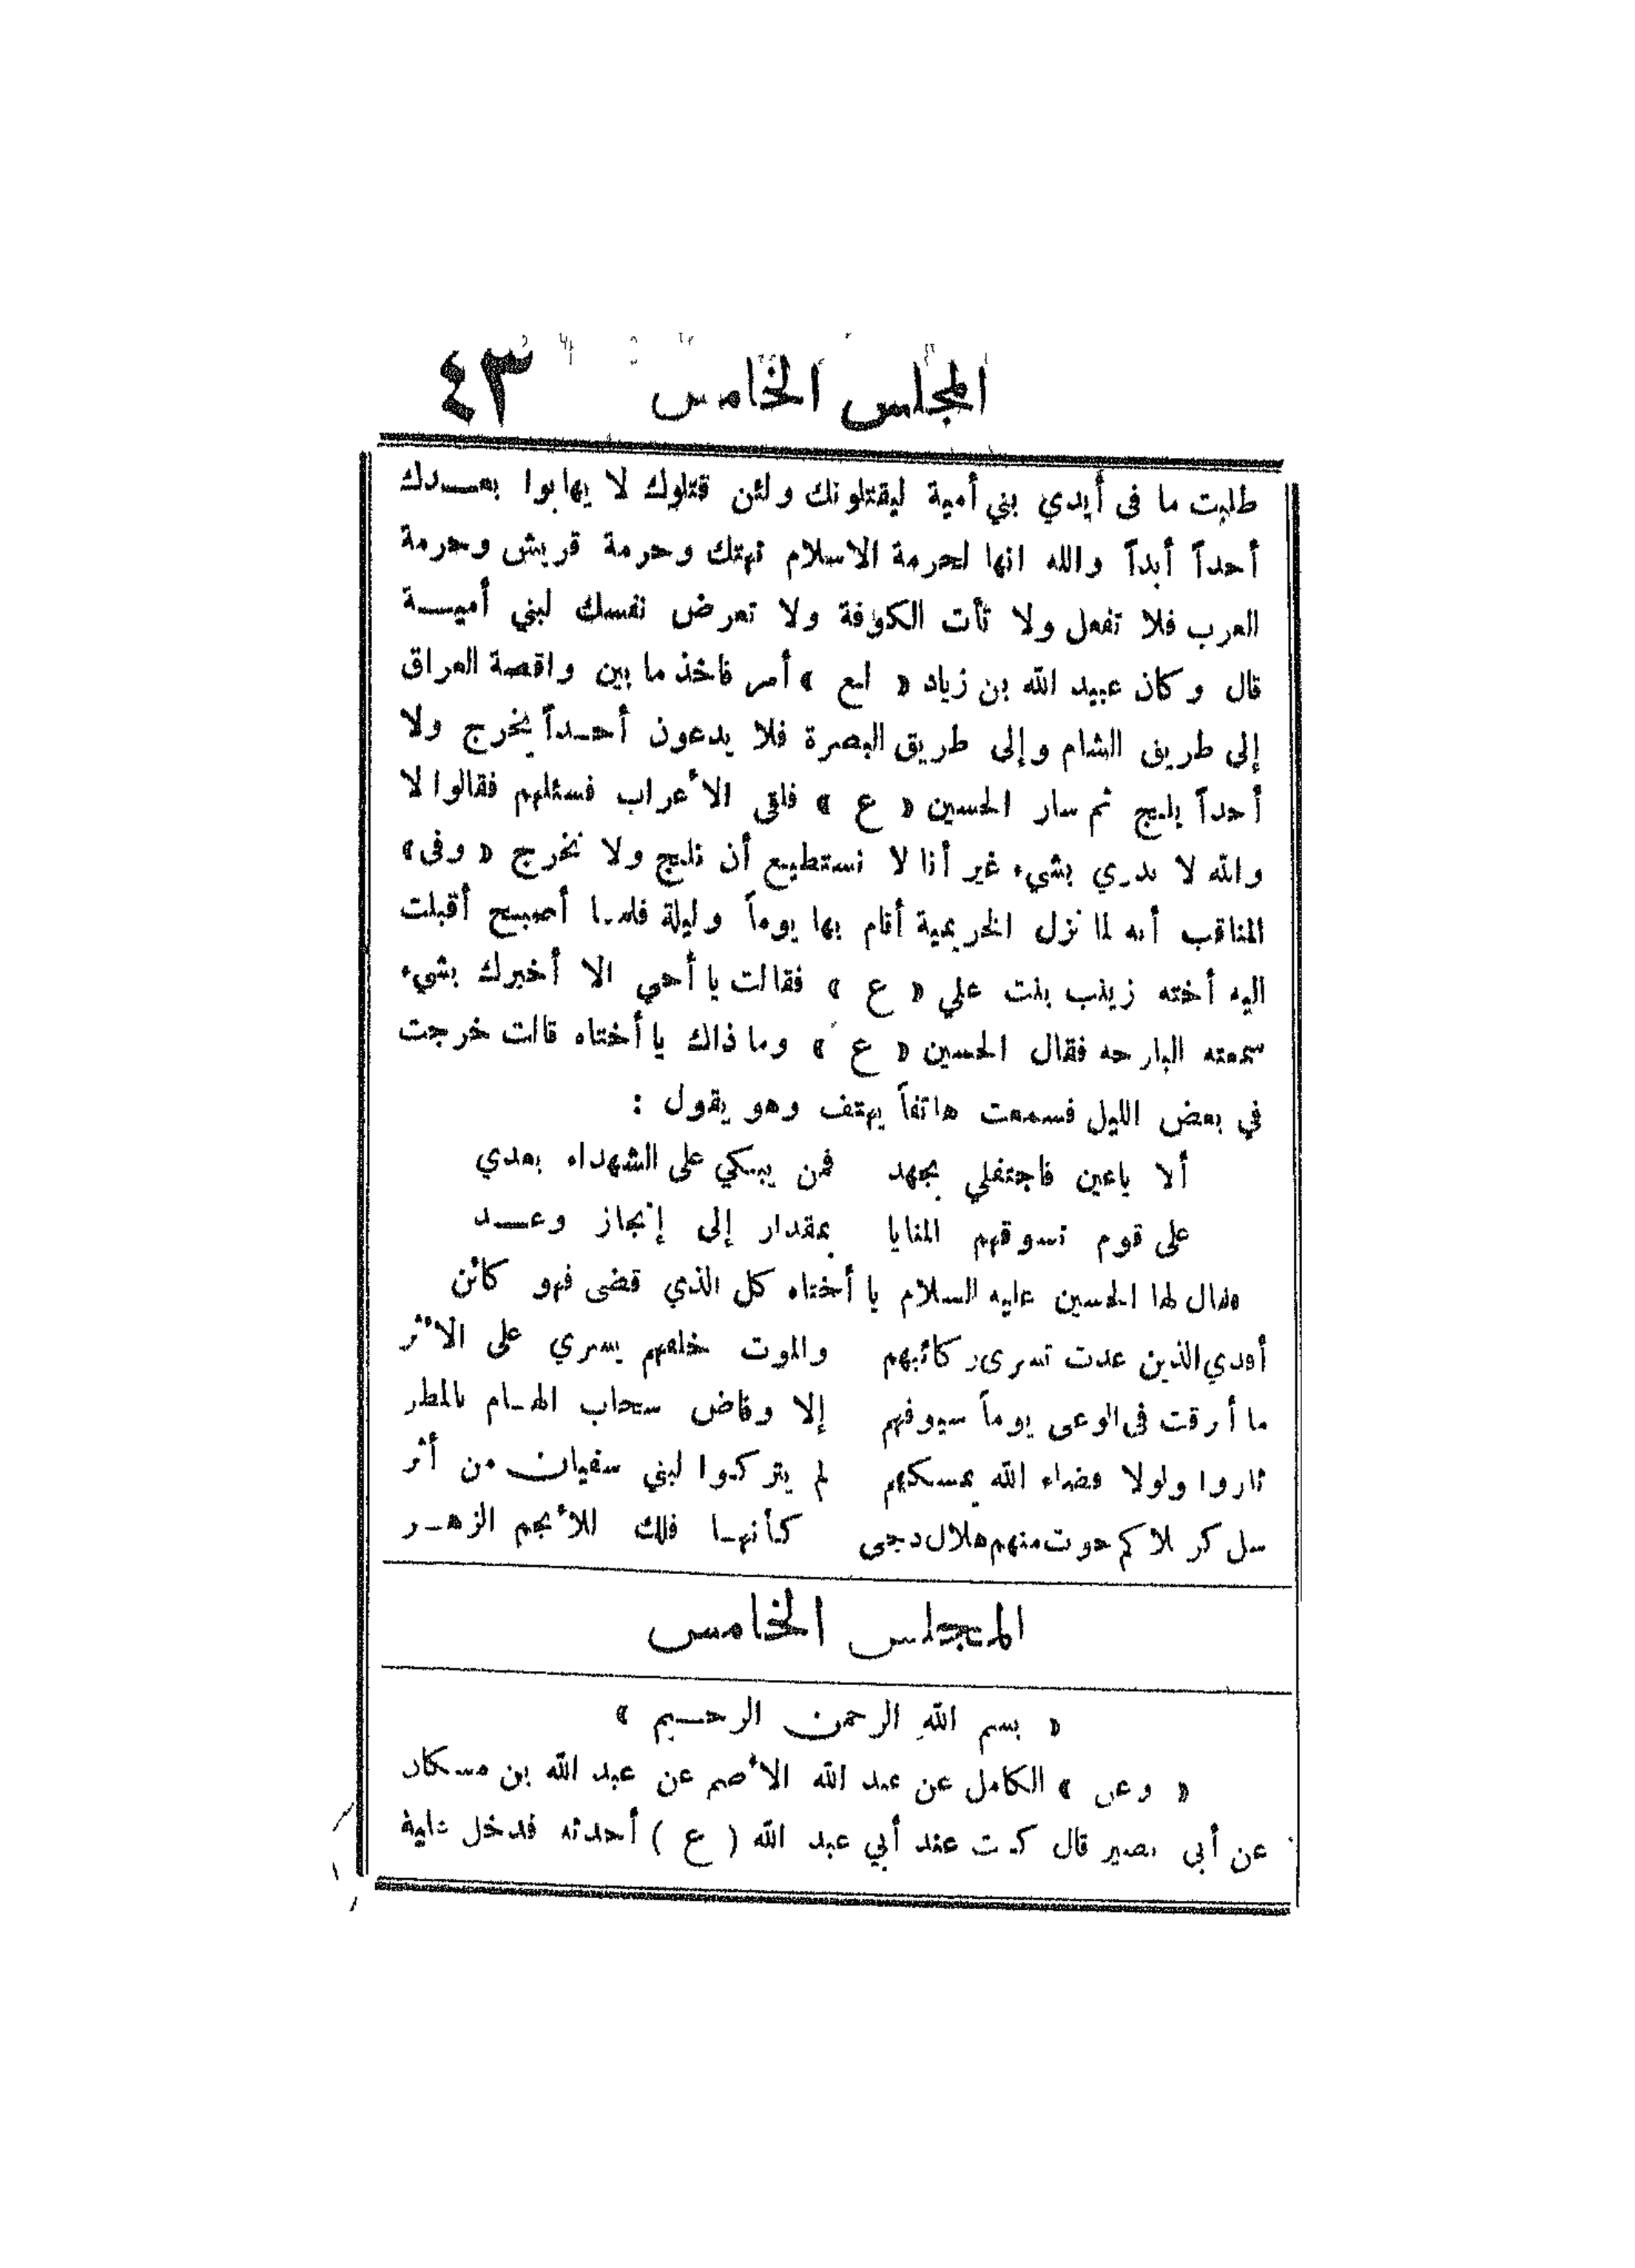 المجلس الخامس ٤٣
طلبت ما فى أيدي بني أمية ليقتلونك ولئن قتلوك لا يهابوا بعدك
أحداً أبداً والله انها لحرمة الاسلام تهتك وحرمة قريش وحرمة
العرب فلا تفعل ولا تأت الكوفة ولا تعرض نفسك لبني أميـــة
قال وكان عبيد الله بن زياد « لع » أمر فاخذ ما بين واقصة العراق
إلى طريق الشام وإلى طريق البصرة فلا يدعون أحداً يخرج ولا
أحداً يلج ثم سار الحسين « ع » فلقى الأعراب فسئلهم فقالوا لا
والله لا ندري بشيء غير أنا لا نستطيع أن نلج ولا نخرج « وفى »
المناقب أنه لما نزل الخريمية أقام بها يوماً وليلة فلما أصبح أقبلت
اليه أخته زينب بنت علي « ع » فقالت يا أخي الا أخبرك بشيء
سمعته البارحه فقال الحسين « ع » وما ذاك يا أختاه قالت خرجت
في بعض الليل فسمعت هاتفاً يهتف وهو يقول :
ألا ياعين فاجتفلي بجهد فمن يبكي على الشهداء بعدي
على قوم تسوقهم المنايا بمقدار إلى إنجاز وعـــد
فقال لها الحسين عليه السلام يا أختاه كل الذي قضى فهو كائن
أفدي الذين غدت تسرى ركائبهم والموت خلفهم يسري على الأثر
ما أرقت فى الوغى يوماً سيوفهم إلا وفاض سحاب الهـام بالمطر
ثاروا ولولا قضاء الله يمسكهم لم يتركوا لبني سفيان من أثر
سل كربلا كم حوت منهم هلال دجى كأنهـا فلك للأنجم الزهـر
المجلس الخامس
« بسم الله الرحمن الرحيم »
« وعن » الكامل عن عبد الله الأصم عن عبد الله بن مسكان
عن أبى بصير قال كنت عند أبي عبد الله ( ع ) أحدثه فدخل عليه